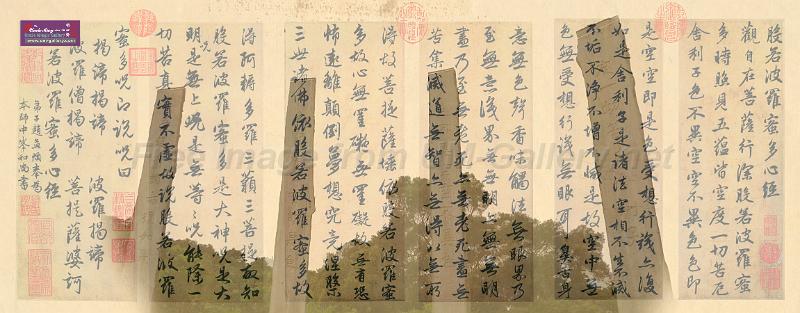 般若波羅蜜多心經
觀自在菩薩行深般若波羅蜜
多時照見五蘊皆空度一切苦厄
舍利子色不異空空不異色色即
是空空即是色受想行識亦復
如是舍利子是諸法空相不生不滅
不垢不淨不增不減是故空中無
色無受想行識無眼耳鼻舌身
意無色聲香味觸法無眼界乃
至無意識界無無明亦無無明
盡乃至無老死亦無老死盡無
苦集滅道無智亦無得以無所
得故菩提薩埵依般若波羅蜜
多故心無罣礙無罣礙故無有恐
怖遠離顛倒夢想究竟涅槃
三世諸佛依般若波羅蜜多故
得阿耨多羅三藐三菩提故知
般若波羅蜜多是大神咒是大
明咒是無上咒是無等等咒能除一
切苦真實不虛故說般若波羅
蜜多咒即說咒曰
揭諦揭諦 波羅揭諦
波羅僧揭諦 菩提薩婆訶
般若波羅蜜多心經
弟子趙孟頫奉為
本師中峯和尚書
Free Image from